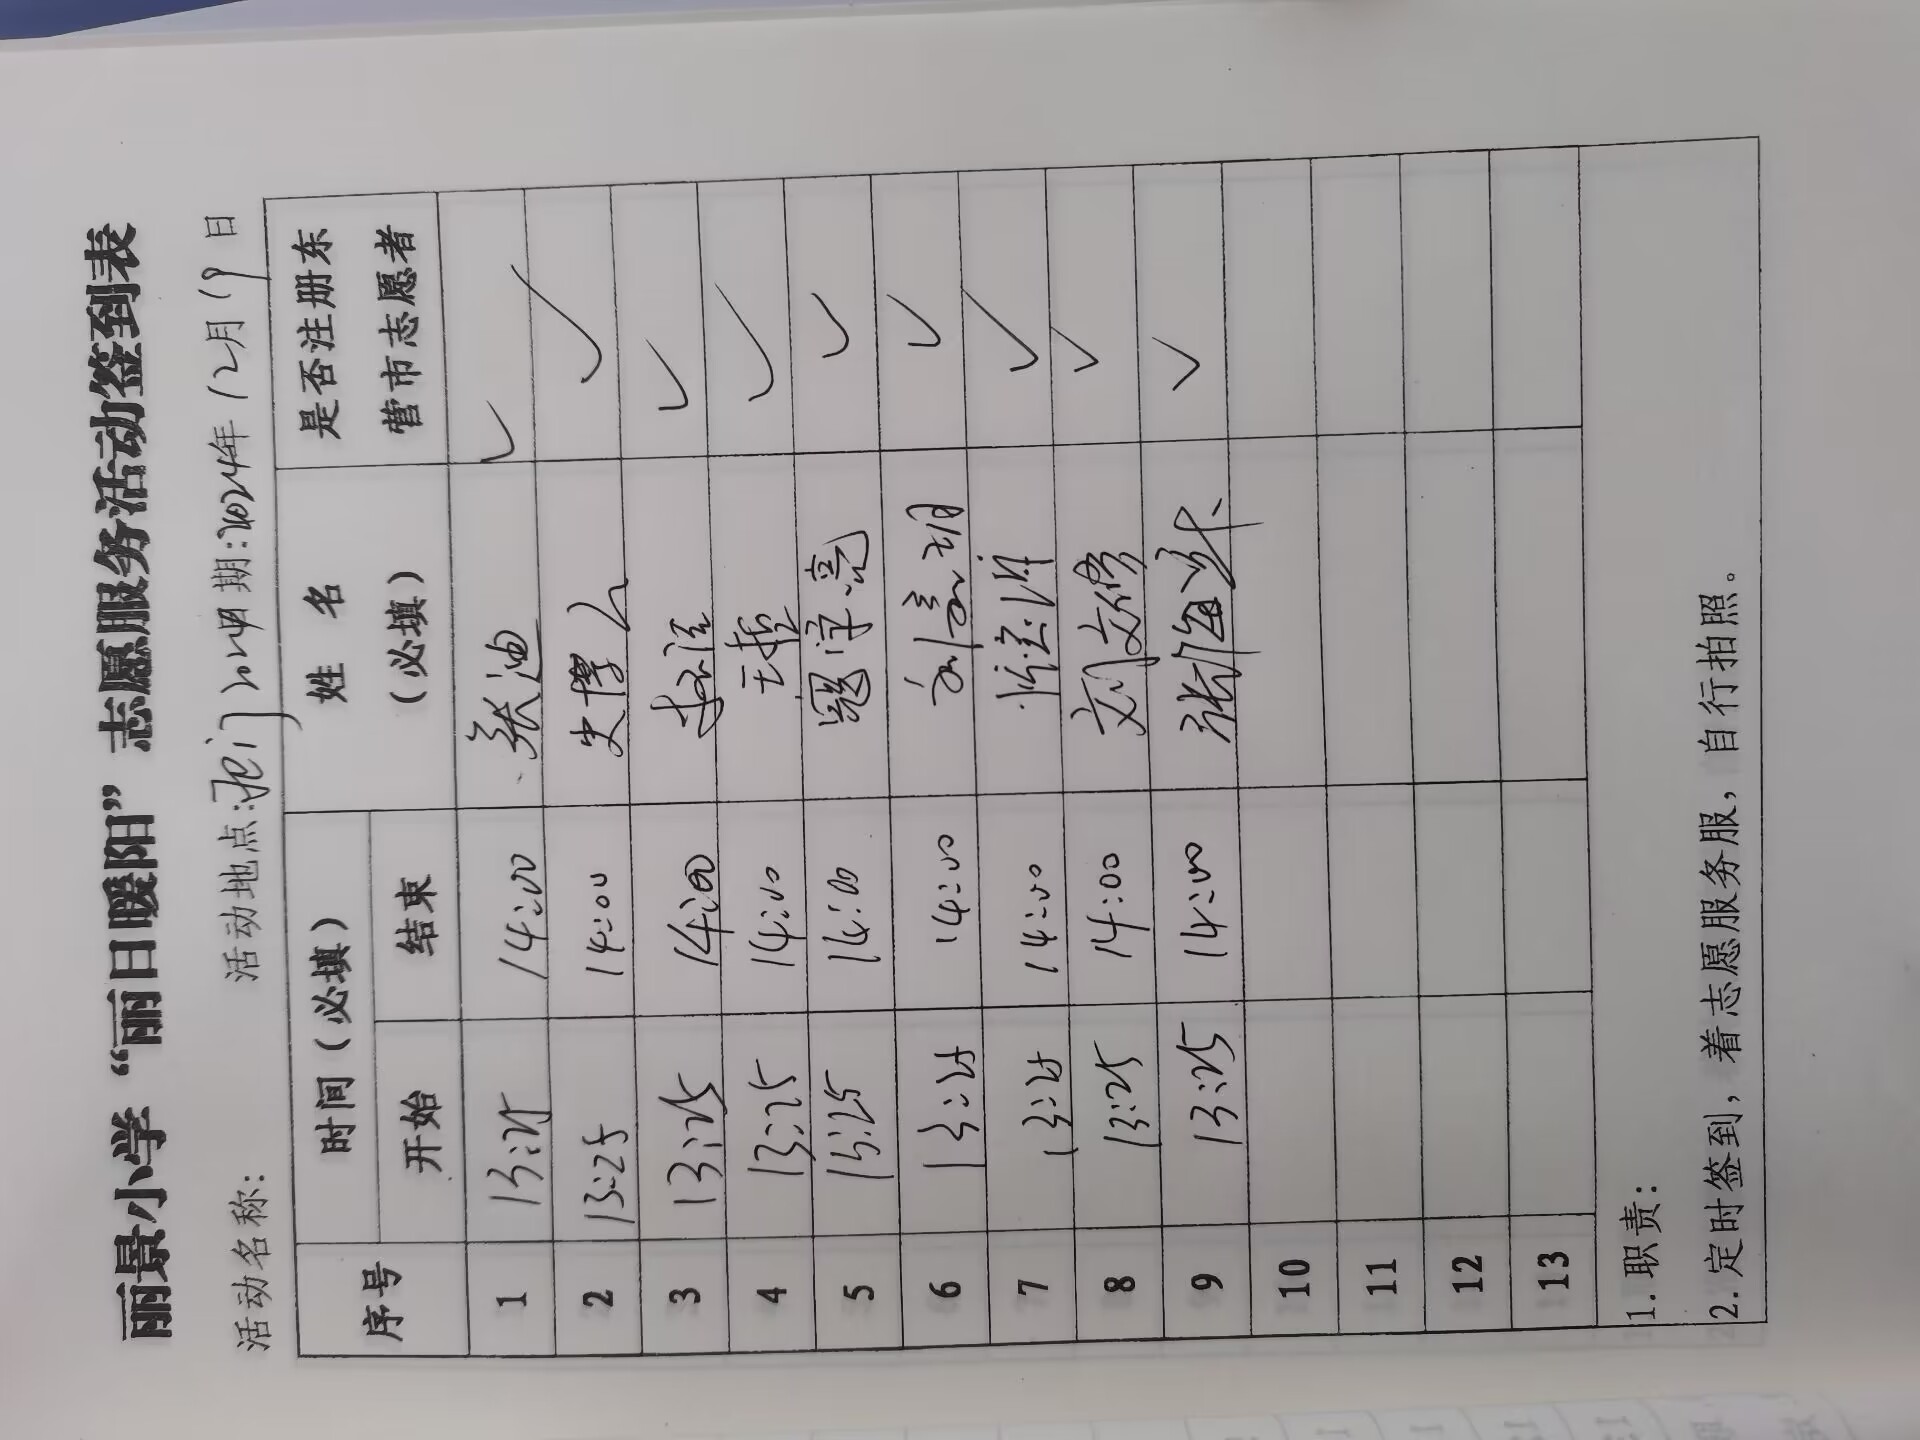 丽景小学“丽日暖阳”志愿服务活动签到表
活动名称： 活动地点： 期：2024年12月19日
序号 时间（必填） 姓 名（必填） 是否注册东营市志愿者
开始 结束
1 13:25 14:00 张迪 ✓
2 13:25 14:00 ✓
3 13:25 14:00 ✓
4 13:25 14:00 ✓
5 13:25 14:00 ✓
6 13:25 14:00 ✓
7 13:25 14:00 ✓
8 13:25 14:00 ✓
9 13:25 14:00 ✓
10
11
12
13
1.职责：
2.定时签到，着志愿服务服，自行拍照。